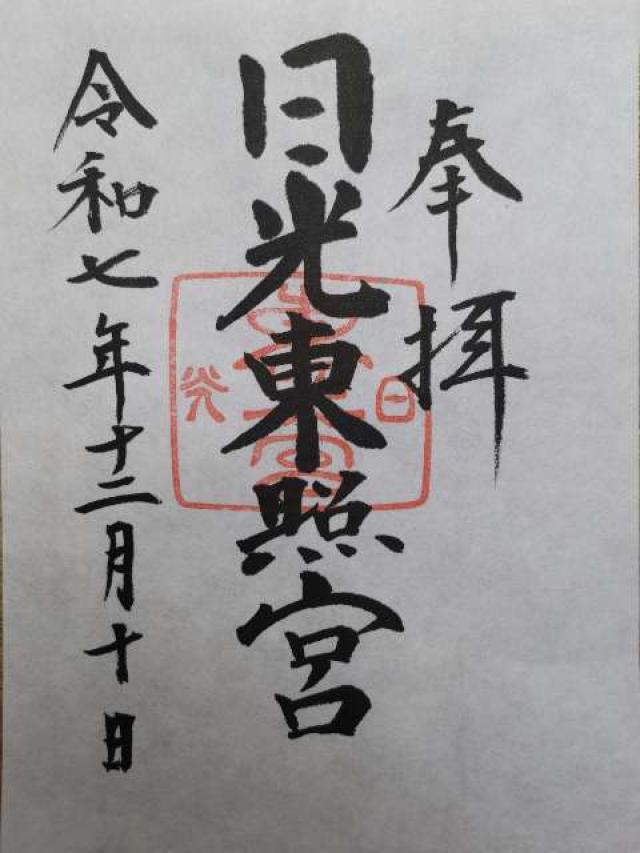 奉拝
日光東照宮
令和七年十二月十日
日光